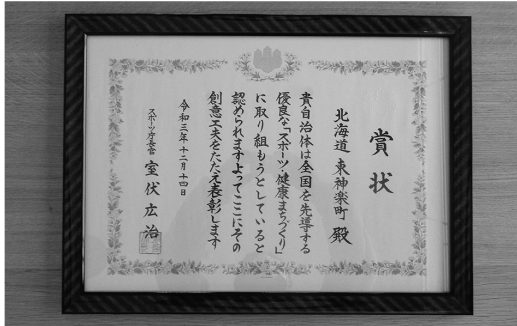 賞状
北海道 東神楽町 殿
貴自治体は全国を先導する
優良な「スポーツ・健康まちづくり」
に取り組もうとしていると
認められますよってここにその
創意工夫をたたえ表彰します
令和三年十二月十四日
スポーツ庁長官 室伏広治